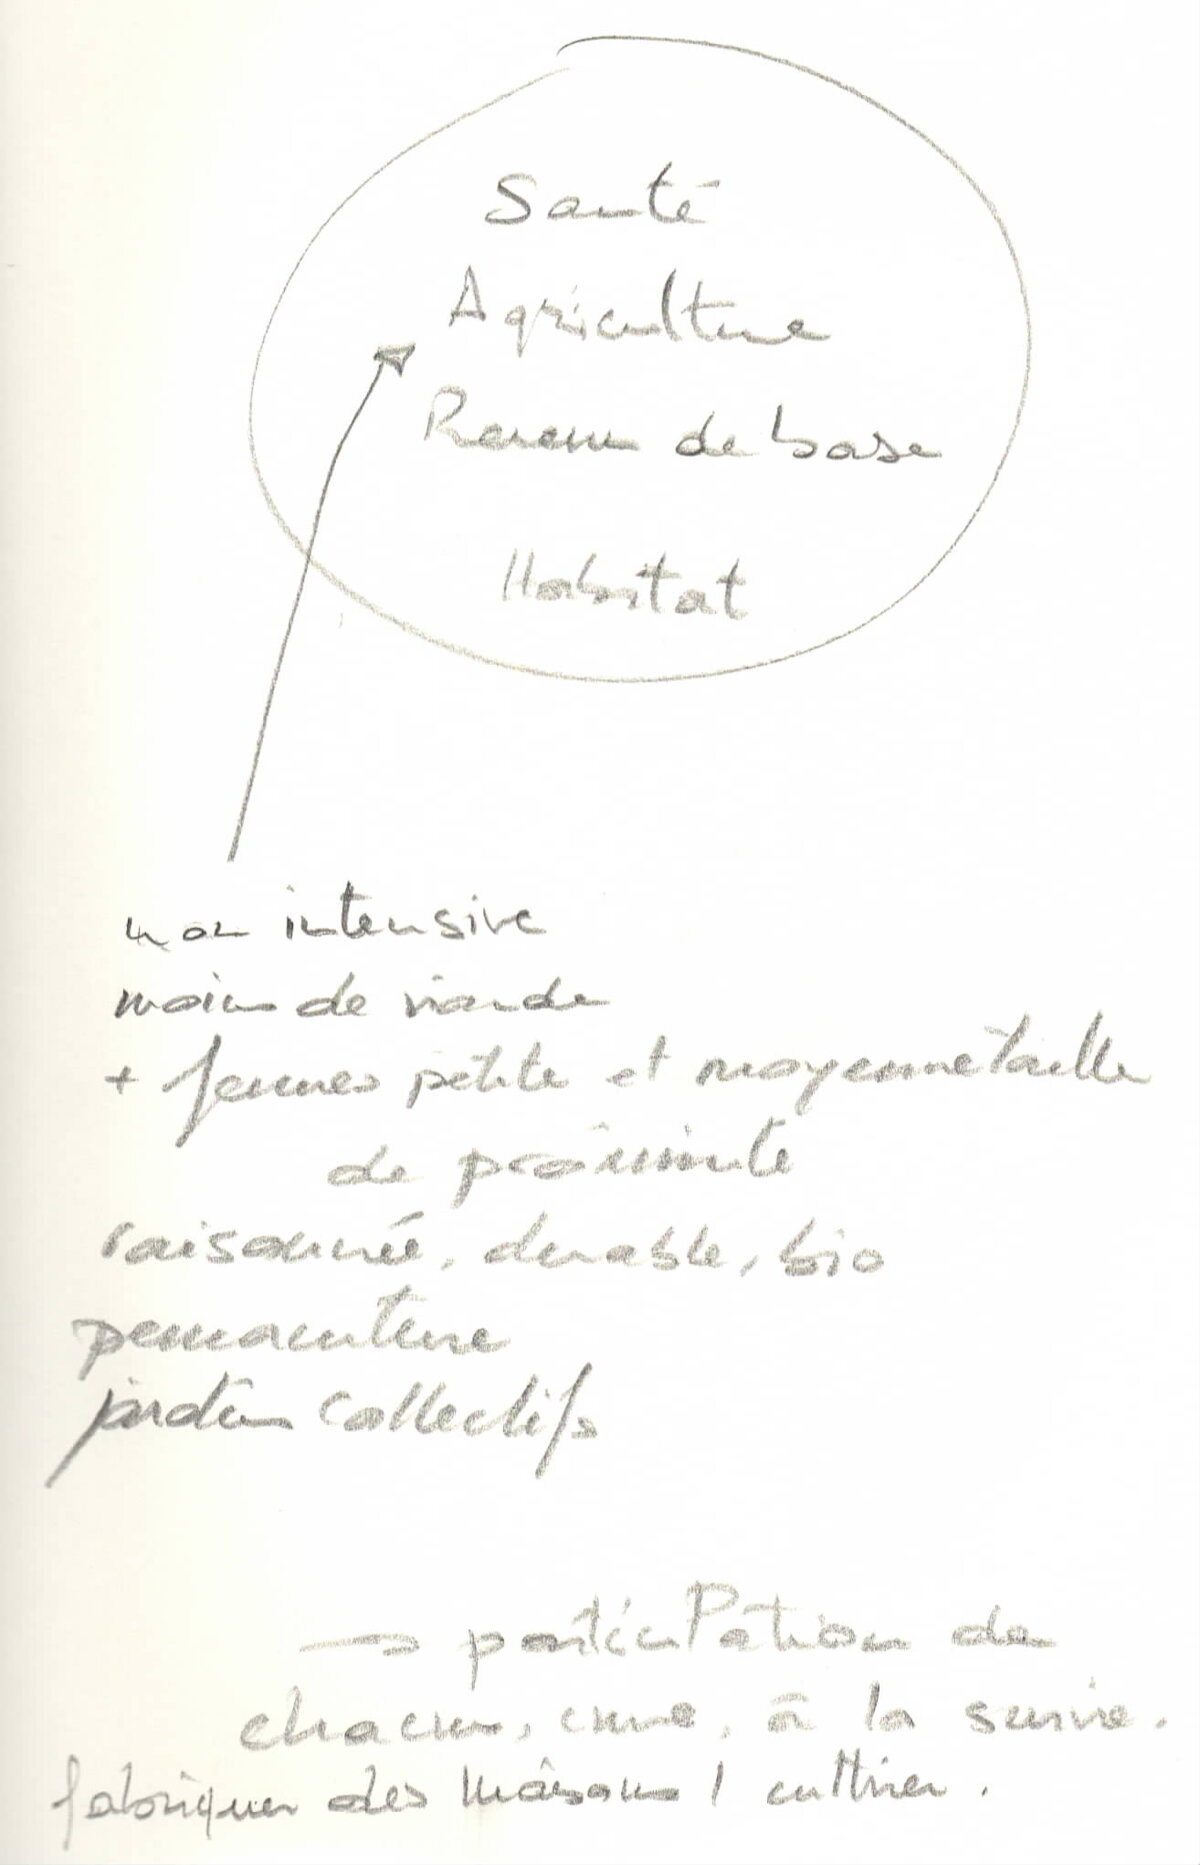 Santé
Agriculture
Revenu de base
Habitat
non intensive
moins de viande
+ fermes petite et moyenne taille
de proximité
raisonnée, durable, bio
permaculture
jardins collectifs
→ participation de
chacun, une, à la survie.
fabriquer des maisons / cultiver.